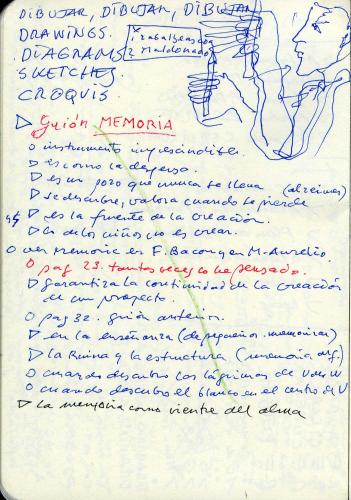 DIBUJAR, DIBUJAR, DIBUJAR
DRAWINGS.
DIAGRAMS
SKETCHES
CROQUIS
Maldonado
▷ guión MEMORIA
o instrumento imprescindible.
▷ es como la despensa.
▷ es un pozo que nunca se llena (alzeimer)
▷ se descubre, valora cuando se pierde
▷ es la fuente de la creación.
▷ la de los niños no es crear.
o ver memoria en F. Bacon y en M. Aurelio.
o pag 23. tantas veces lo he pensado.
▷ garantiza la continuidad de la creación
de un proyecto.
o pag 32. guión anterior.
▷ en la enseñanza (de pequeños. memorizar)
▷ la Ruina y la estructura (memoria
o cuando descubro las lágrimas de
o cuando descubro el blanco en el centro de V
▷ la memoria como vientre del alma